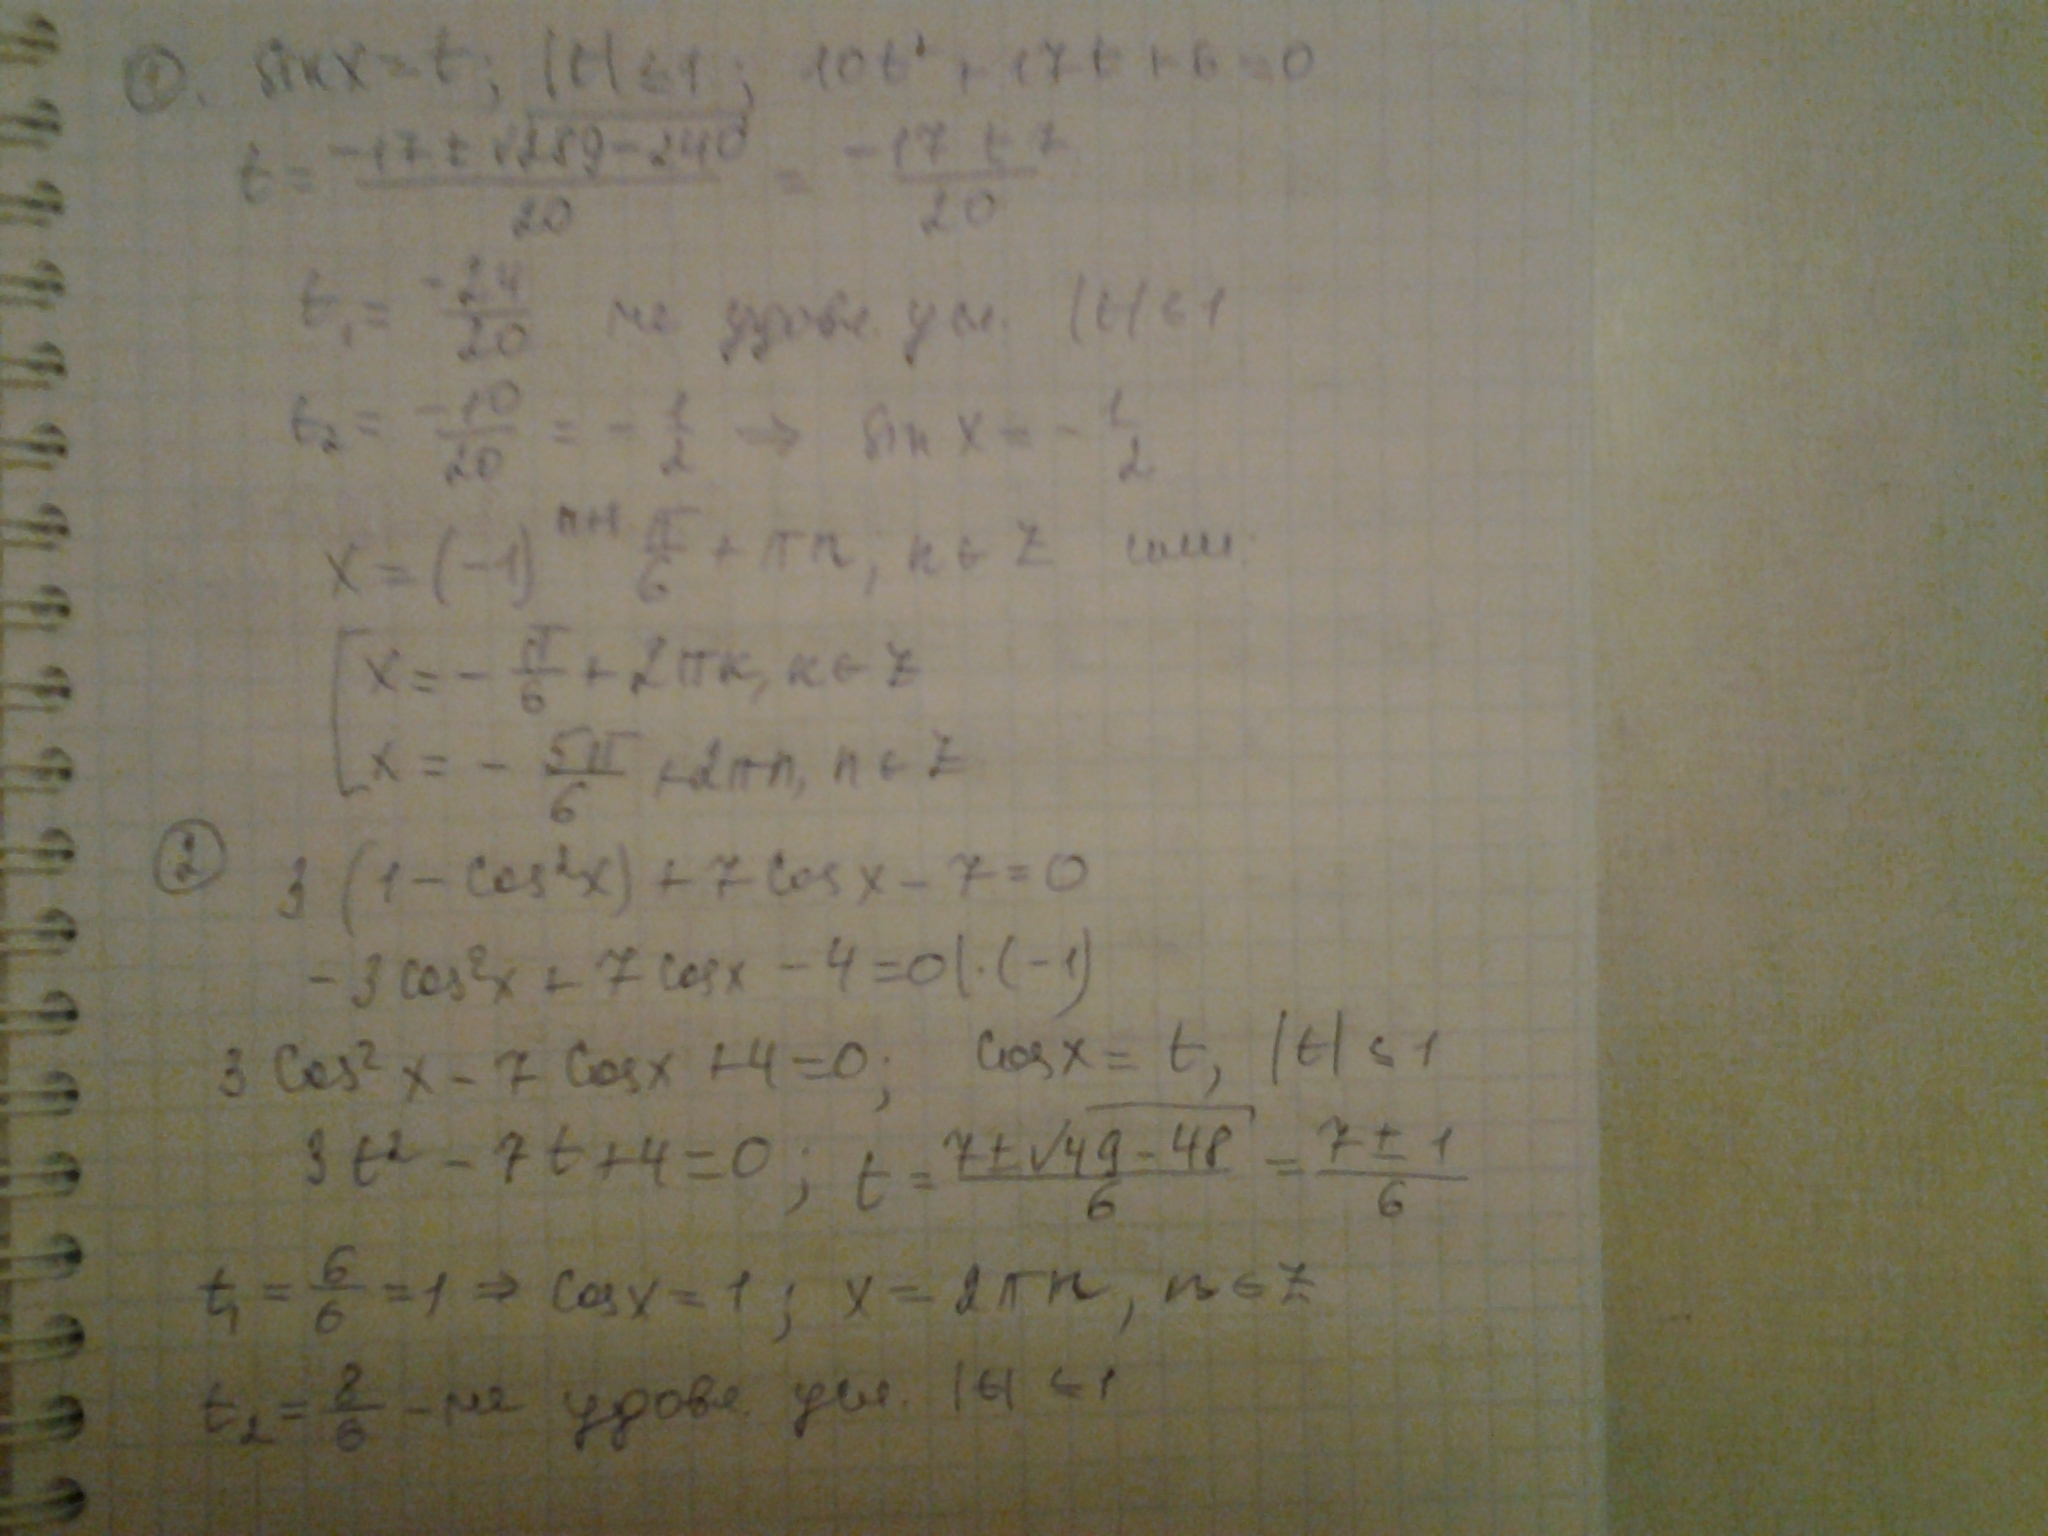 ①. sin x = t; |t| ≤ 1; 10t² + 17t + 6 = 0
t = (-17 ± √(289 - 240))/20 = (-17 ± 7)/20
t₁ = -24/20 не удовл. усл. |t| ≤ 1
t₂ = -10/20 = -1/2 ⇒ sin x = -1/2
x = (-1)ⁿ⁺¹ π/6 + πn; n ∈ Z
[ x = -π/6 + 2πк, к ∈ Z
x = -5π/6 + 2πn, n ∈ Z
② 3(1 - cos²x) + 7cos x - 7 = 0
-3cos²x + 7cos x - 4 = 0 |·(-1)
3cos²x - 7cos x + 4 = 0; cos x = t, |t| ≤ 1
3t² - 7t + 4 = 0; t = (7 ± √(49 - 48))/6 = (7 ± 1)/6
t₁ = 6/6 = 1 ⇒ cos x = 1; x = 2πn, n ∈ Z
t₂ = 8/6 - не удовл. усл. |t| ≤ 1